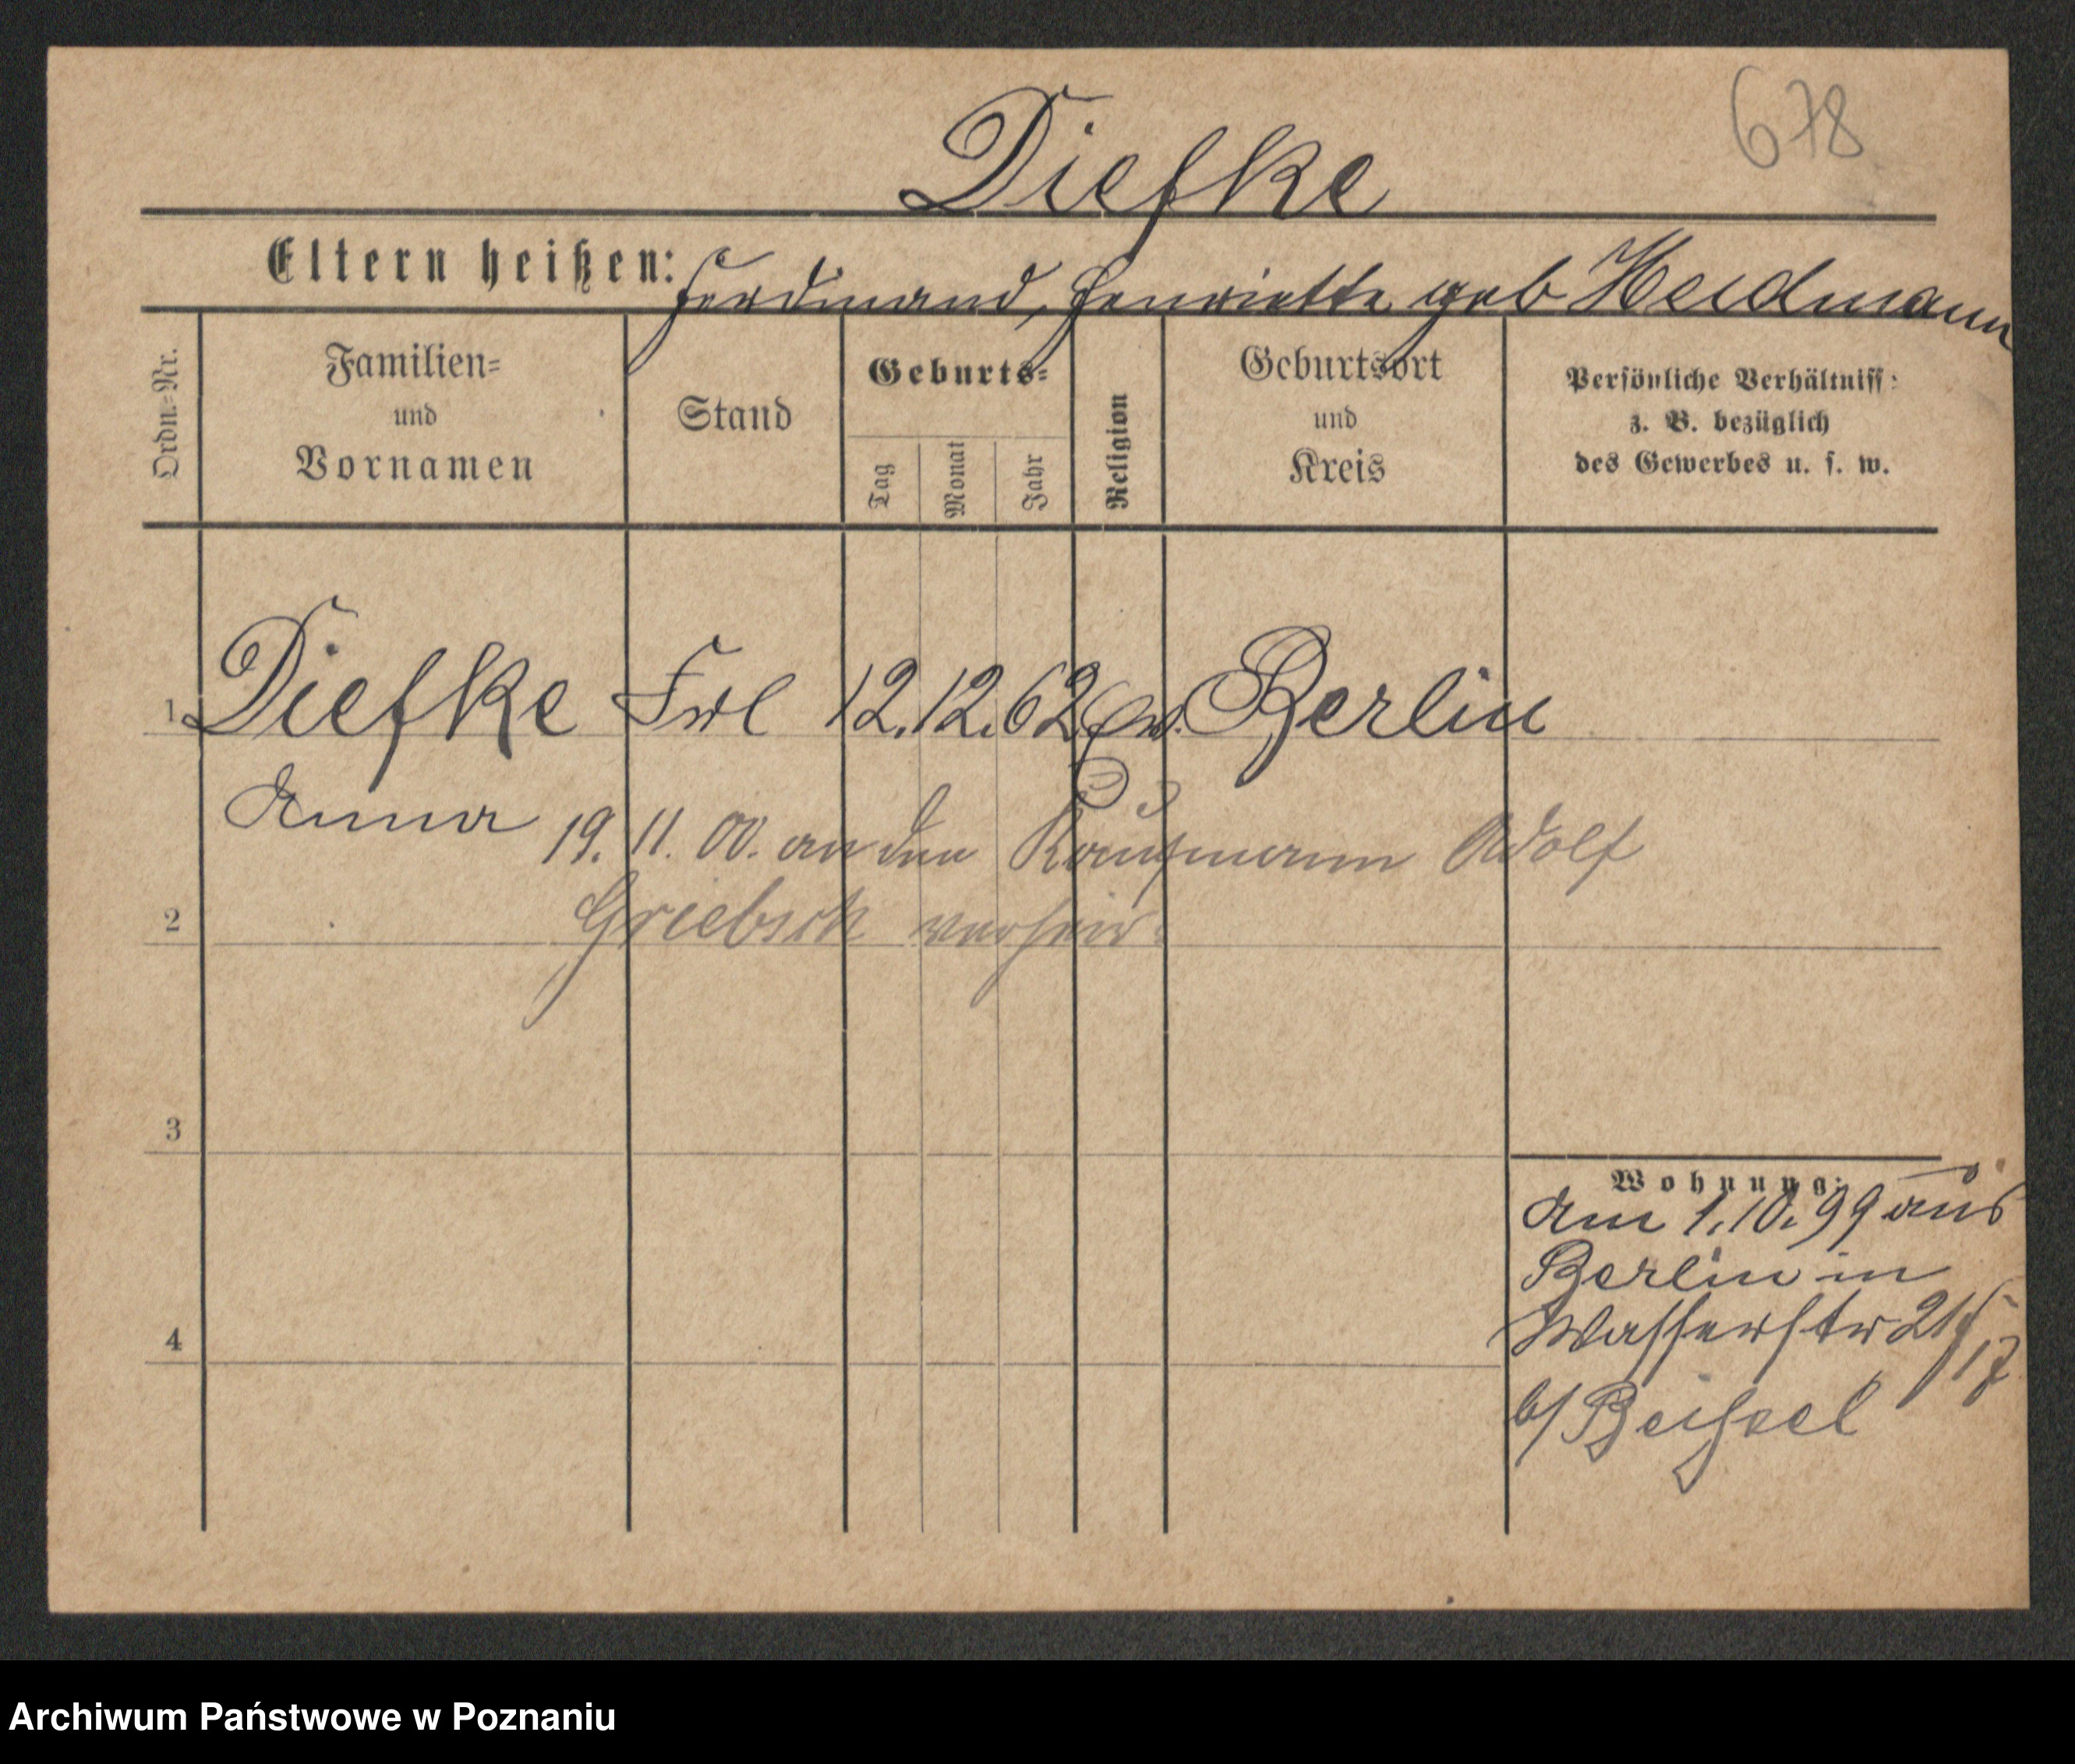 678
Diefke
Eltern heißen: Ferdinand, Henriette geb Heidmann
Ordn.=Nr.
Familien=
und
Vornamen
Stand
Geburts=
Tag
Monat
Jahr
Religion
Geburtsort
und
Kreis
Persönliche Verhältniss
z. B. bezüglich
des Gewerbes u. s. w.
1 Diefke Frl 12. 12. 62 Ev. Berlin
Anna
19. 11. 00. an den Kaufmann Adolf
2 Griebsch verheir.
3
Wohnung:
Am 1.10.99 aus
Berlin in
4 Wasserstr 21/
17
b/
Archiwum Państwowe w Poznaniu